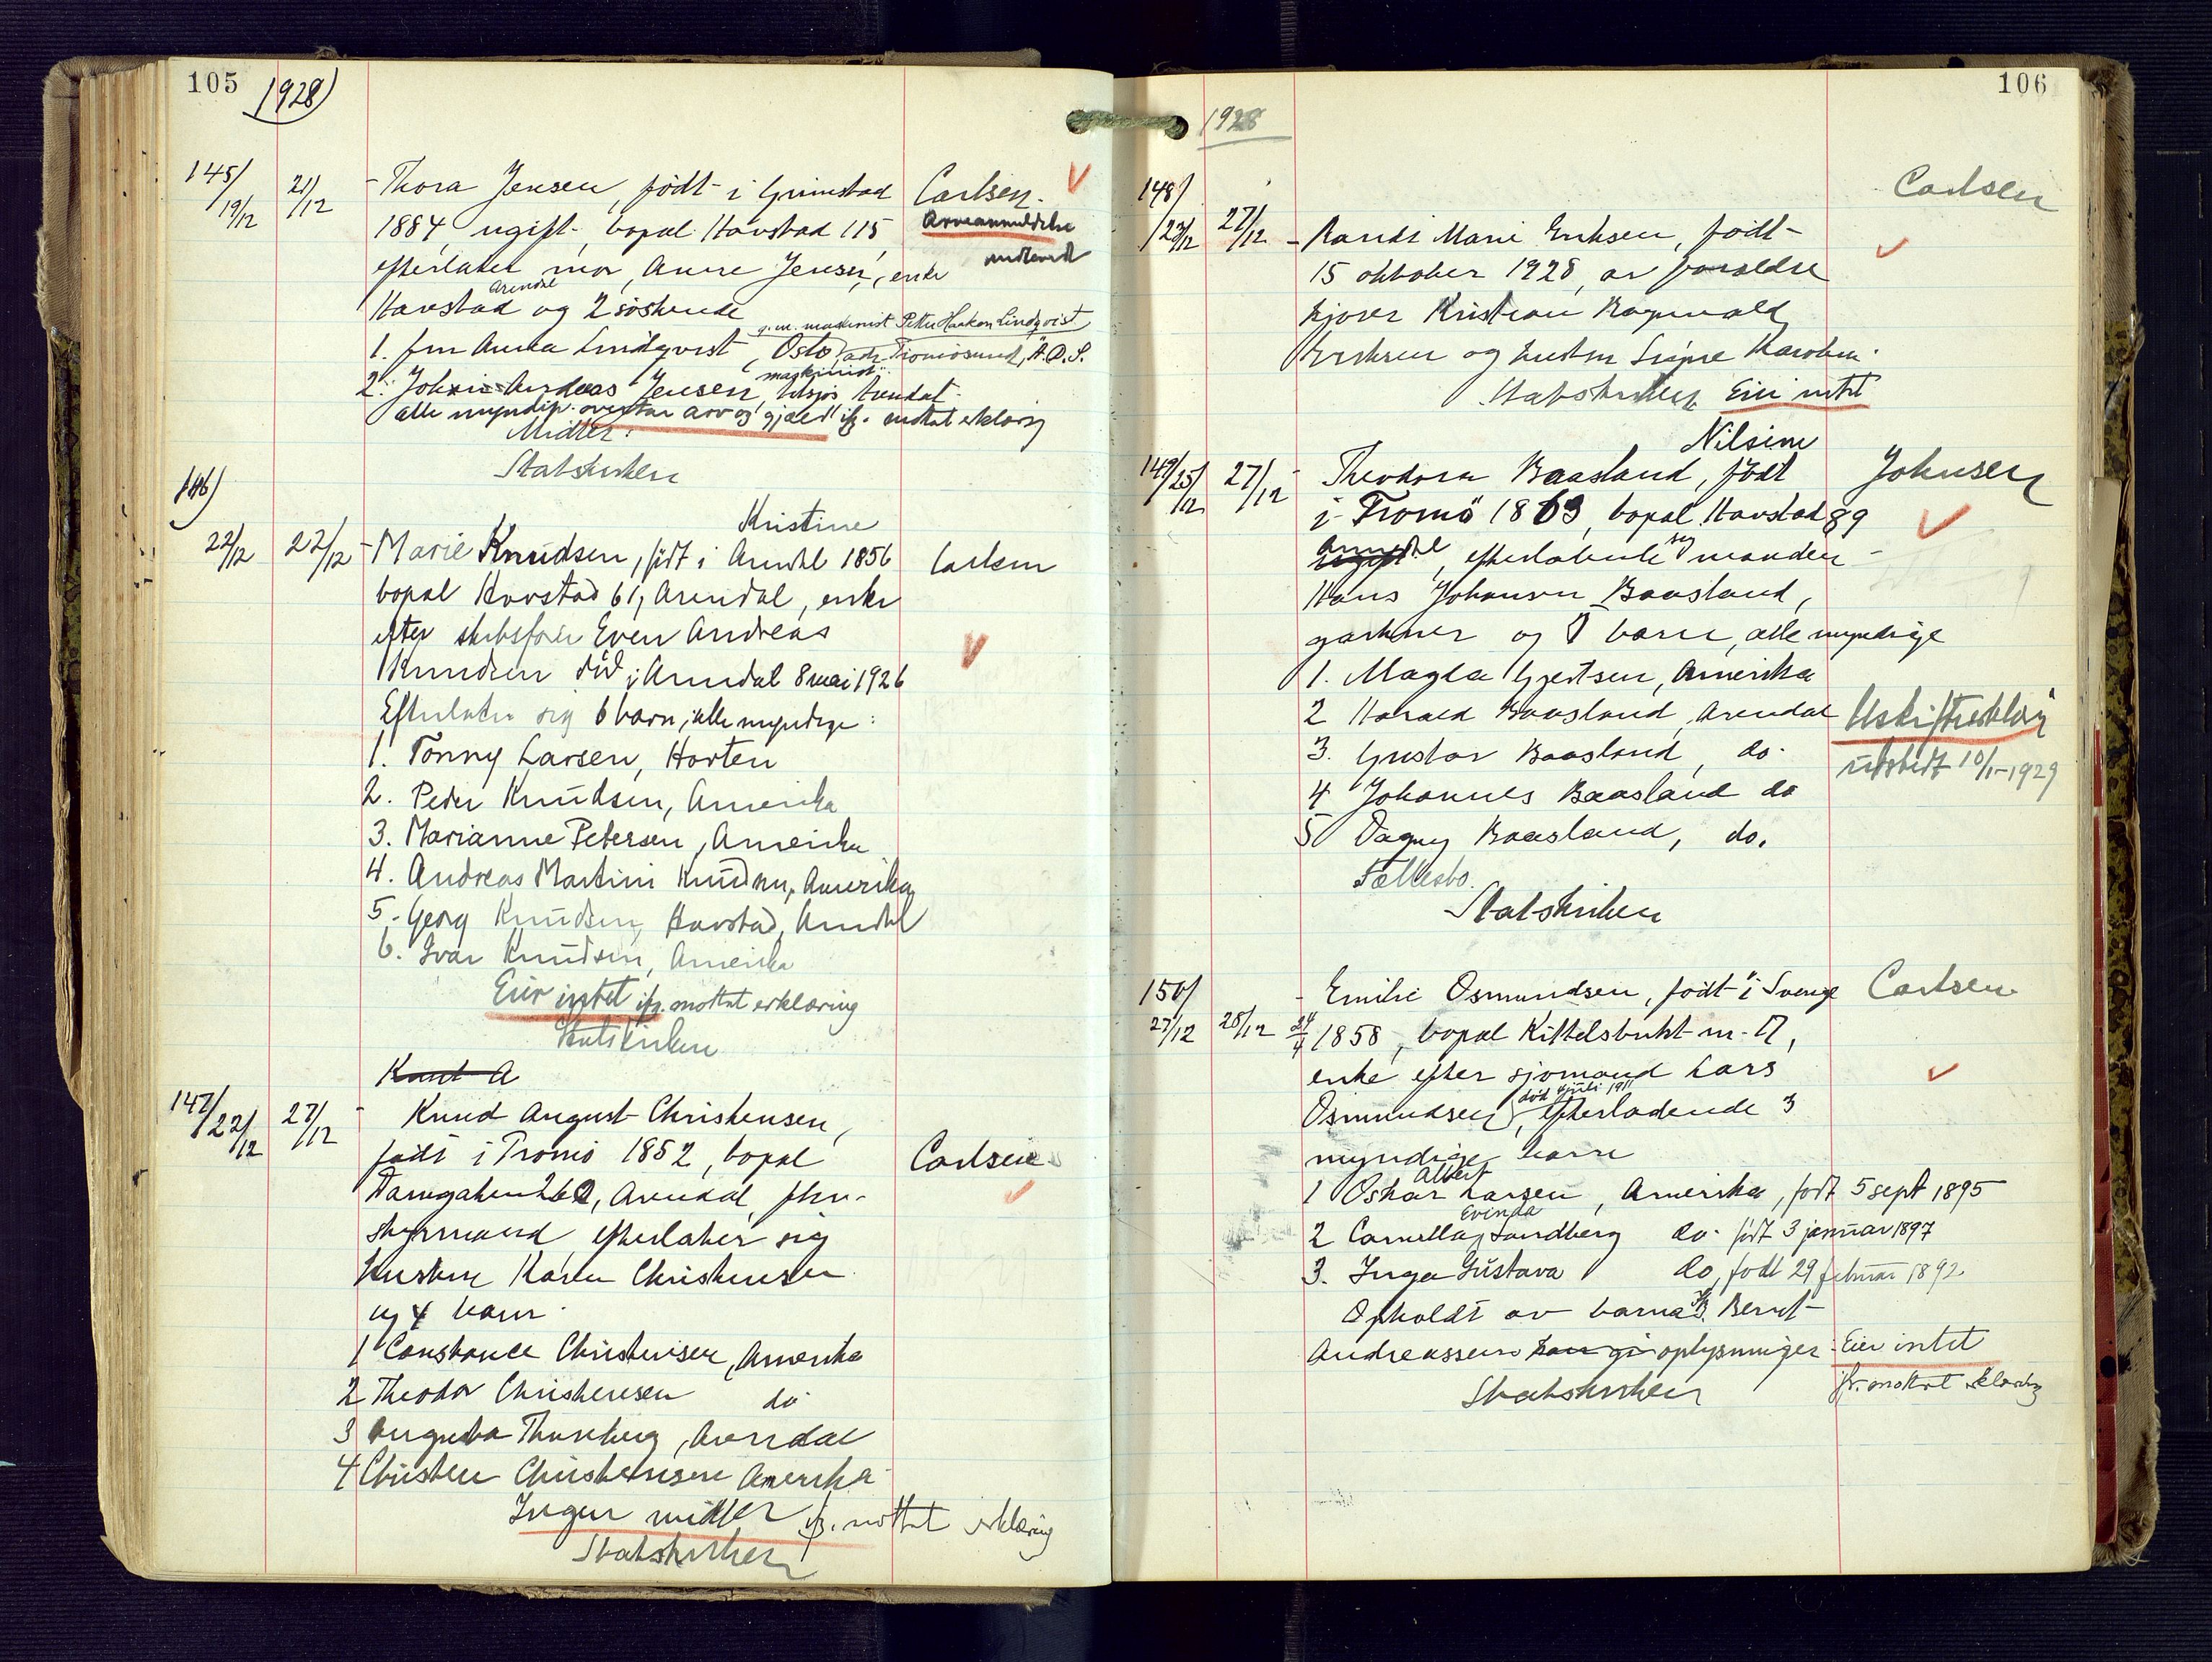 105
1928
145/ 19/12
21/12
Thora Jensen, födt i Grimstad
Carlsen.
1884, ugift, bopal Havstad 115,
efterlater mor, Anne Jensen, enke
Arendal
Havstad og 2 söskende
g.m. maskinist Petter Haakon Lindqvist
1. fru Anna Lindqvist, Oslo, adr. Tromösund, A.D.S.
maskinist
2. Andreas Jensen, tilsjös, Arendal
alle myndige. overtar arv og gjæld ifg. mottat erklæring
Midler:
Statskirken
146)
22/12
22/12
Kristine
Marie Knudsen, födt i Arendal 1856
Carlsen
bopal Havstad 61, Arendal, enke
efter skibsförer Even Andreas
Knudsen död i Arendal 8 mai 1926
Efterlater sig 6 barn, alle myndige:
1. Tonny Larsen, Horten
2. Peder Knudsen, Amerika
3. Marianne Petersen, Amerika
4. Andreas Martin Knudsen, Amerika
5. Georg Knudsen, Havstad, Arendal
6. Ivar Knudsen, Amerika
Eier intet ifg. mottat erklæring
Statskirken
Knut A
147/ 22/12
27/12
Knud August Christensen,
födt i Tromö 1852, bopal
Carlsen
Arendal, fhv.
styrmand efterlater sig
hustru Karen Christensen
og 4 barn.
1 Constance Christensen, Amerika
2 Theodor Christensen do
3 Augusta Thunberg, Arendal
4 Christen Christensen Amerika
Ingen midler ifg. mottat erklæring
Statskirken
106
1928
148/
Carlsen
/23/12
27/12
Randi Marie Eriksen, födt
15 oktober 1928, av foreldre
kjörer Kristian Ragnvald
Eriksen og hustru Signe Karoline.
Statskirken Eier intet
Nilsine
149/ 25/12
27/12
Theodora Baasland, födt
Johnsen
i Tromö 1863, bopal Havstad 89
Arendal, efterlatende sig manden
Hans Johansen Baasland,
gartner og 5 barn, alle myndige
1. Magda Gjertsen, Amerika
2 Harald Baasland, Arendal
Uskifteerklæring
3. Gustav Baasland, do.
utstedt 10/1-1929
4 Johannes Baasland do
5 Dagny Baasland, do.
Fællesbo.
Statskirken
150/
Emilie Osmundsen, födt i Sverige
Carlsen
27/12
28/12
24/4 1858, bopal Kittelsbukt nr. 17,
enke efter sjömand Lars
död 4 juli 1911
Osmundsen, efterladende 3
myndige barn
Albert
1 Oskar Larsen, Amerika, födt 5 sept 1895
Evinda
2 Camilla Sandberg do. födt 3 januar 1897
3. Inga Gustava do, födt 29 februar 1892
Opholdt av barna. Bernt
Andreassen kan gi oplysninger. Eier intet
ifr. mottat erklæring
Statskirken